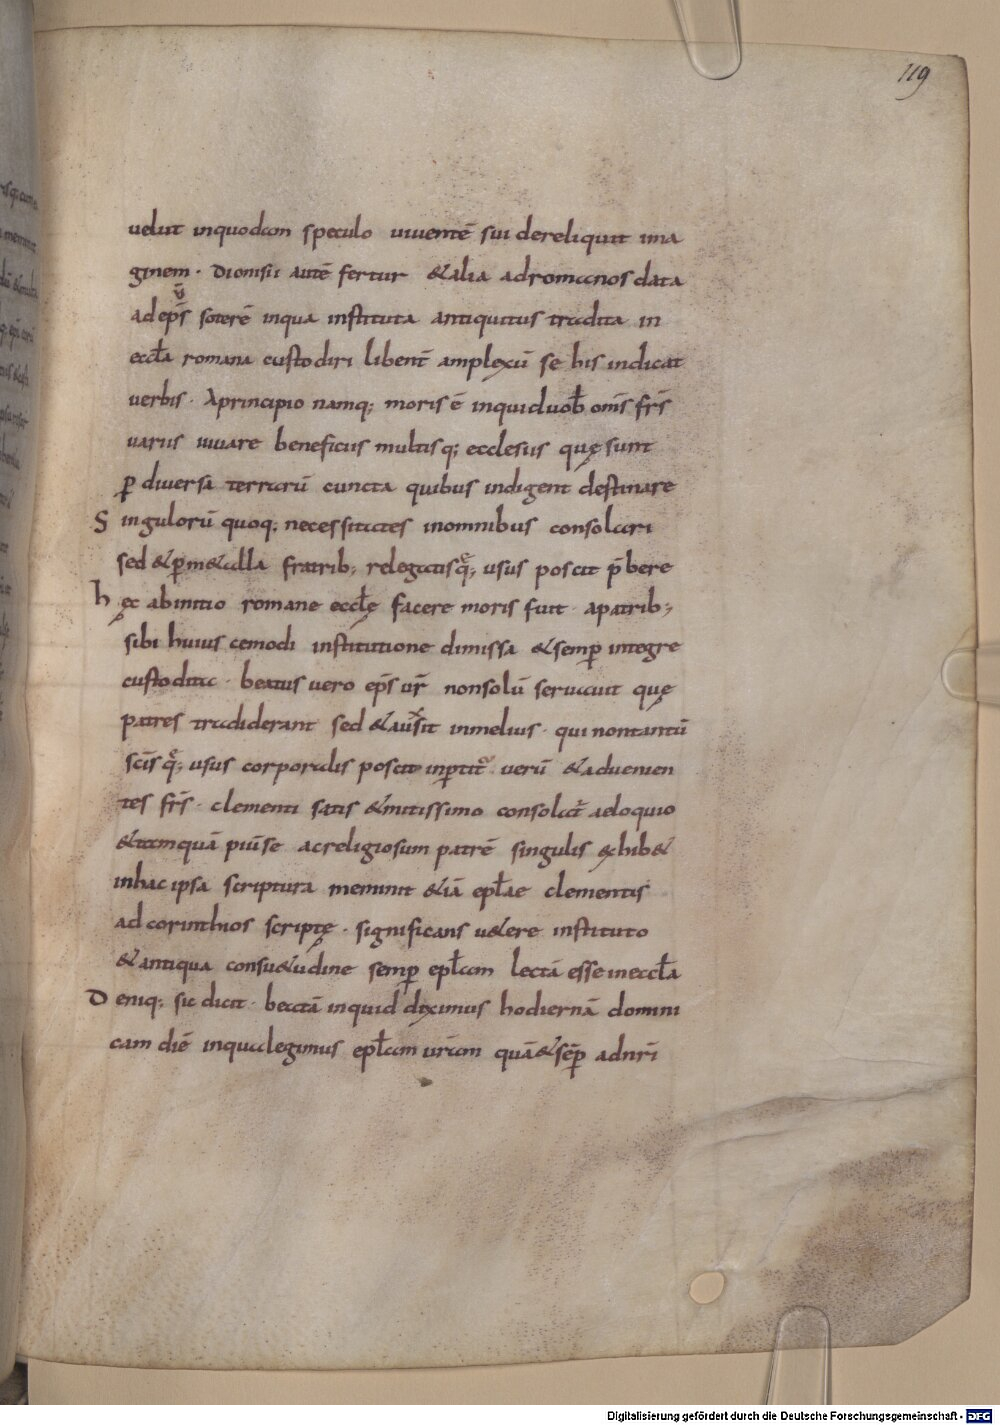 119
uelut inquodam speculo uiuentē sui dereliquit ima
ginem · Dionisii autē fertur &alia adromanos data
adep̄s soterē inqua instituta antiquitus tradita in
eccła romana custodiri libent̄ amplexū se his indicat
uerbis · Aprincipio namq; moris ē inquid uob̄ om̄s fr̄s
uariis iuuare beneficiis multisq; ecclesiis quę sunt
ꝑ diuersa terrarū cuncta quibus indigent destinare
Singulorū quoq; necessitates inomnibus consolari
sed &ꝑm&alla fratrib; relegatisq; usus poscit p̄bere
hęc abinitio romane eccłę facere moris fuit apatrib;
sibi huius cemodi institutione dimissa &semꝑ integre
custodita · beatus uero ep̄s ur̄ nonsolū seruauit quę
patres tradiderant sed &auxit inmelius · qui nontantū
sc̄is q; usus corporalis poscit inꝑtit uerū &aduenien
tes fr̄s · clementi satis &mitissimo consolat̄ adoquio
&tamquā piūse acreligiosum patrē singulis exhib&
inhac ipsa scriptura meminit &iā epłae clementis
ad corinthios scriptę · significans u&ere instituto
&antiqua consu&udine semꝑ epłam lectā esse ineccła
Deniq; sic dicit · beatā inquid diximus hodiernā domini
cam diē inqualegimus epłam ur̄am quā&sēꝑ adnr̄i
Digitalisierung gefördert durch die Deutsche Forschungsgemeinschaft - DFG